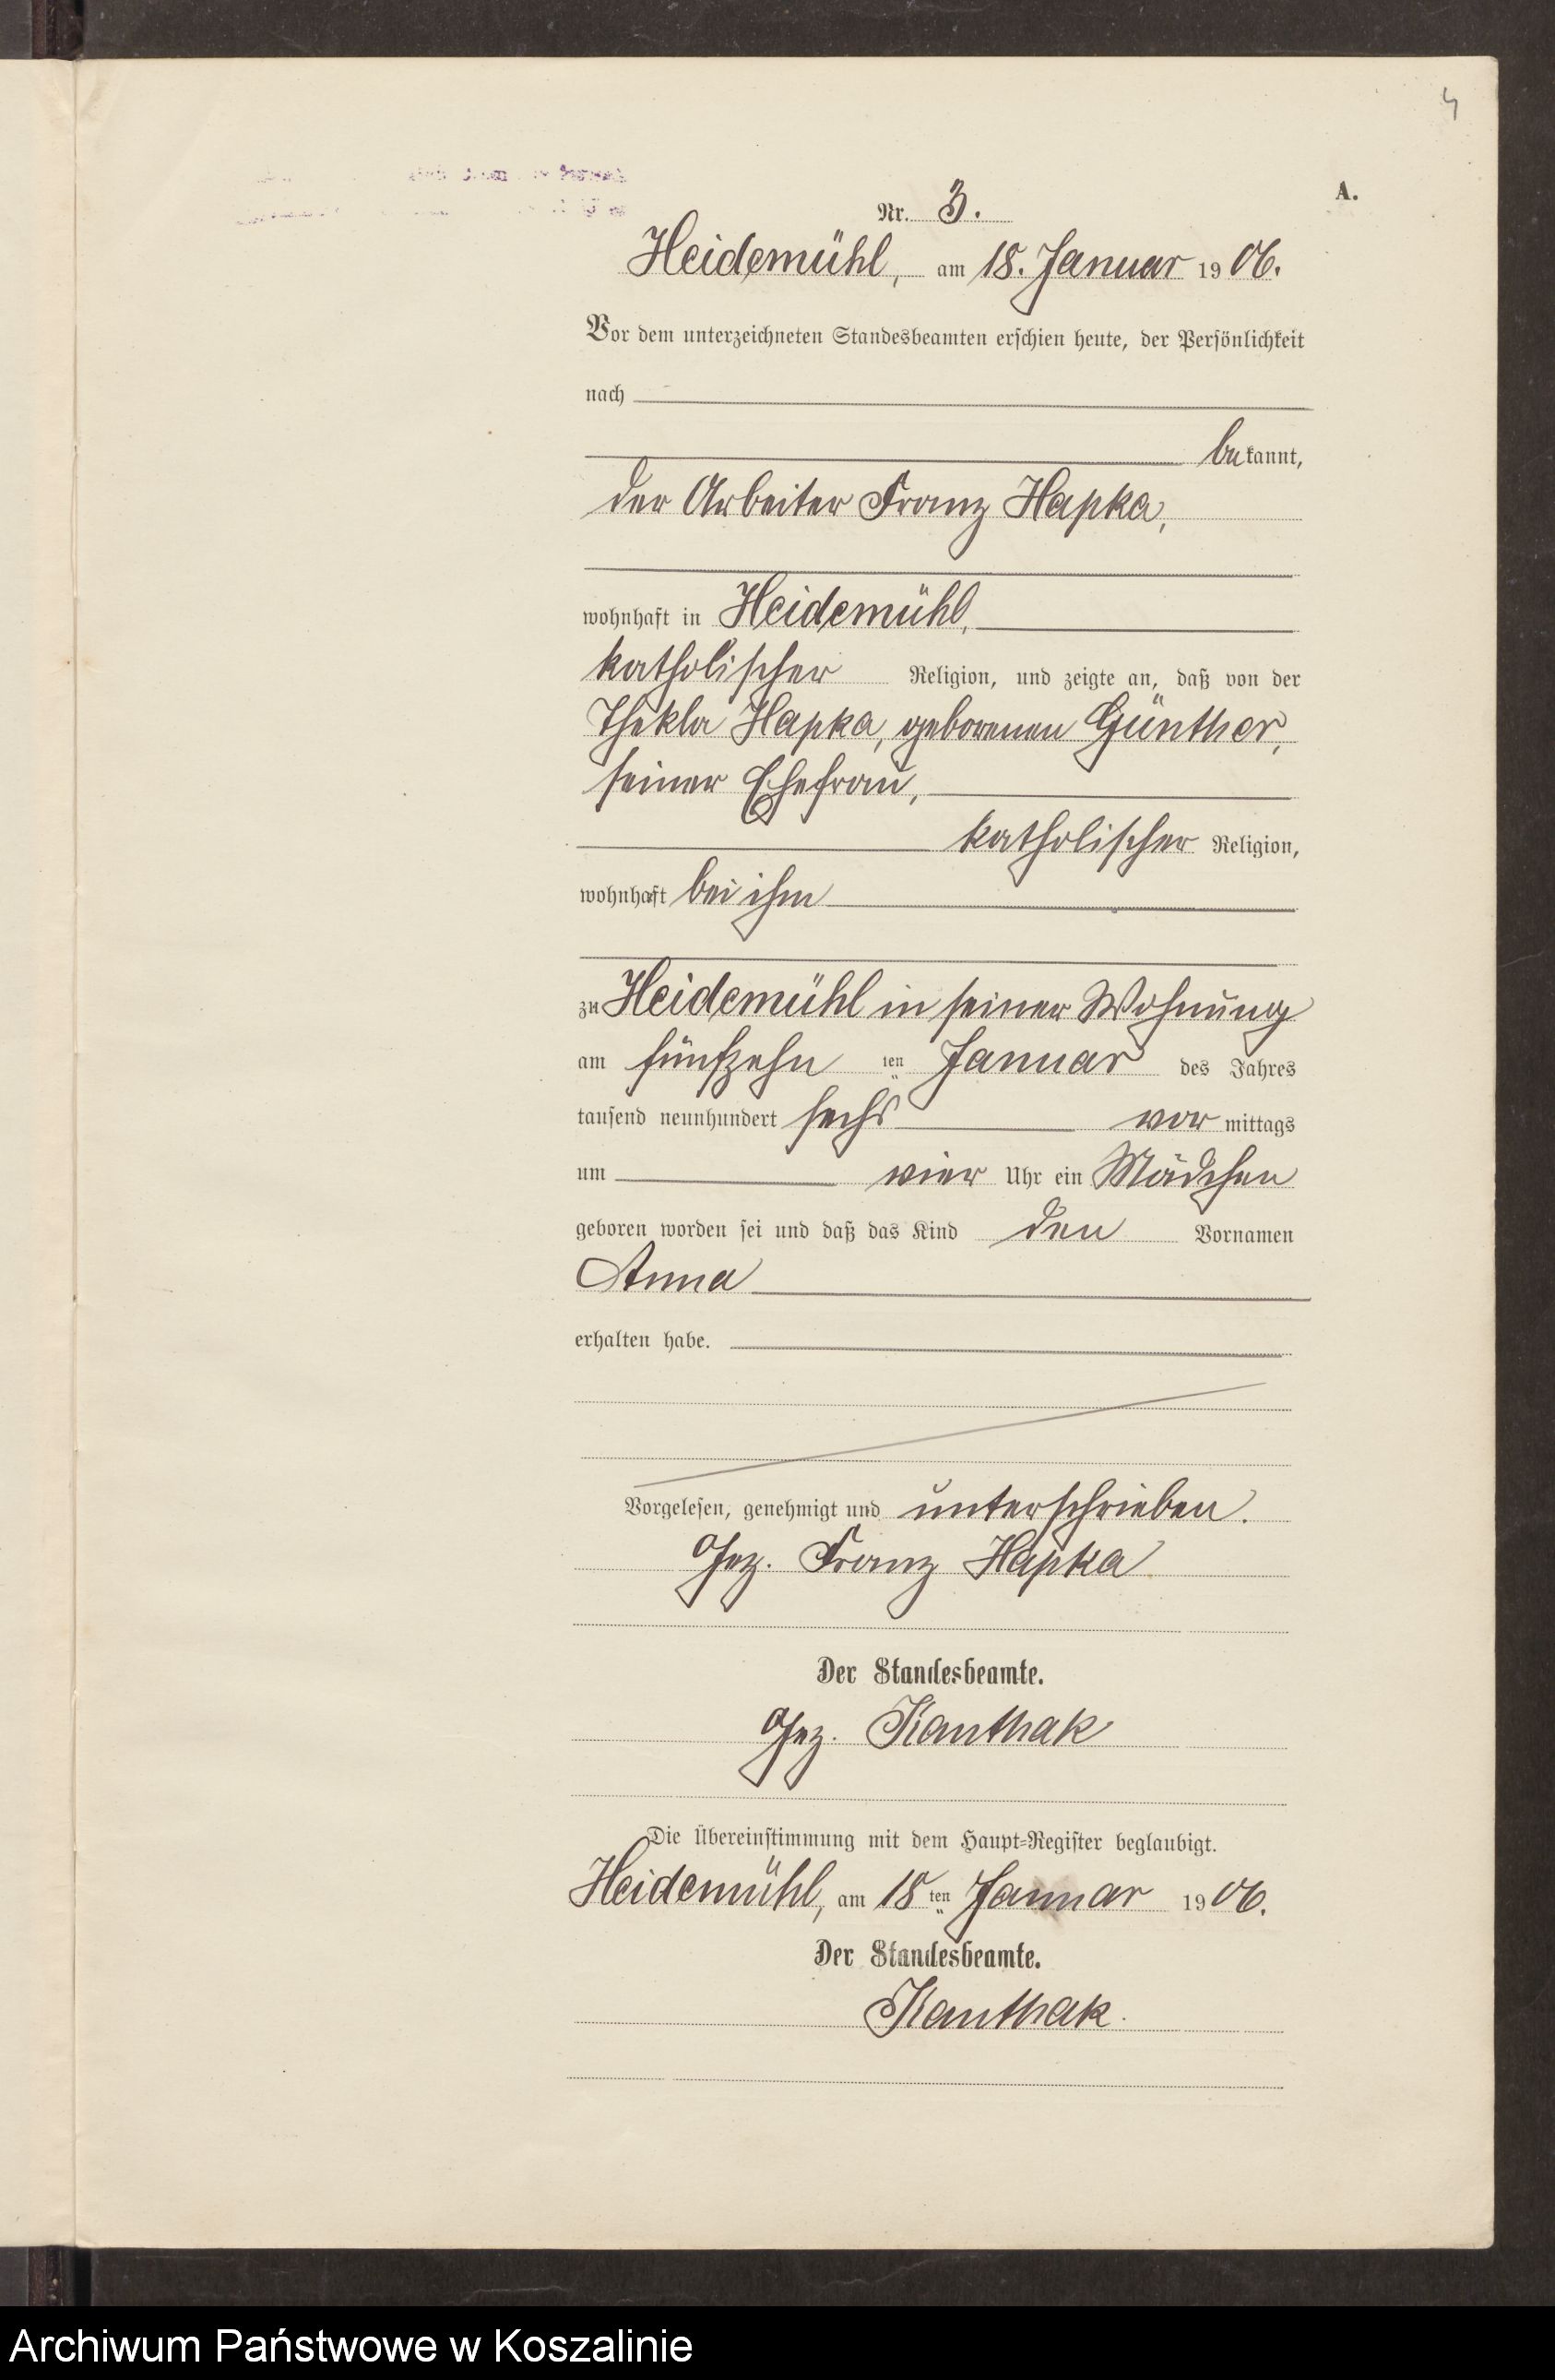 4
A.
Nr. 3.
Heidemühl, am 18. Januar 1906.
Vor dem unterzeichneten Standesbeamten erschien heute, der Persönlichkeit
nach
bekannt,
der Arbeiter Franz Hapka,
wohnhaft in Heidemühl,
katholischer Religion, und zeigte an, daß von der
Thekla Hapka, geborenen Günther,
seiner Ehefrau,
katholischer Religion,
wohnhaft bei ihm
zu Heidemühl in seiner Wohnung
am fünfzehn ten Januar des Jahres
tausend neunhundert sechs vor mittags
um vier Uhr ein Mädchen
geboren worden sei und daß das Kind den Vornamen
Anna
erhalten habe.
Vorgelesen, genehmigt und unterschrieben.
Gez. Franz Hapka
Der Standesbeamte.
Gez. Kanthak
Die Übereinstimmung mit dem Haupt=Register beglaubigt.
Heidemühl, am 18ten Januar 1906.
Der Standesbeamte.
Kanthak.
Archiwum Państwowe w Koszalinie